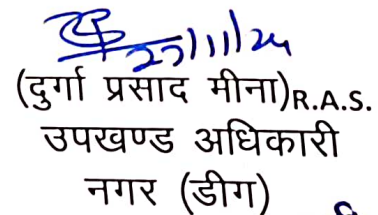 27/11/24
(दुर्गा प्रसाद मीना)R.A.S.
उपखण्ड अधिकारी
नगर (डीग)